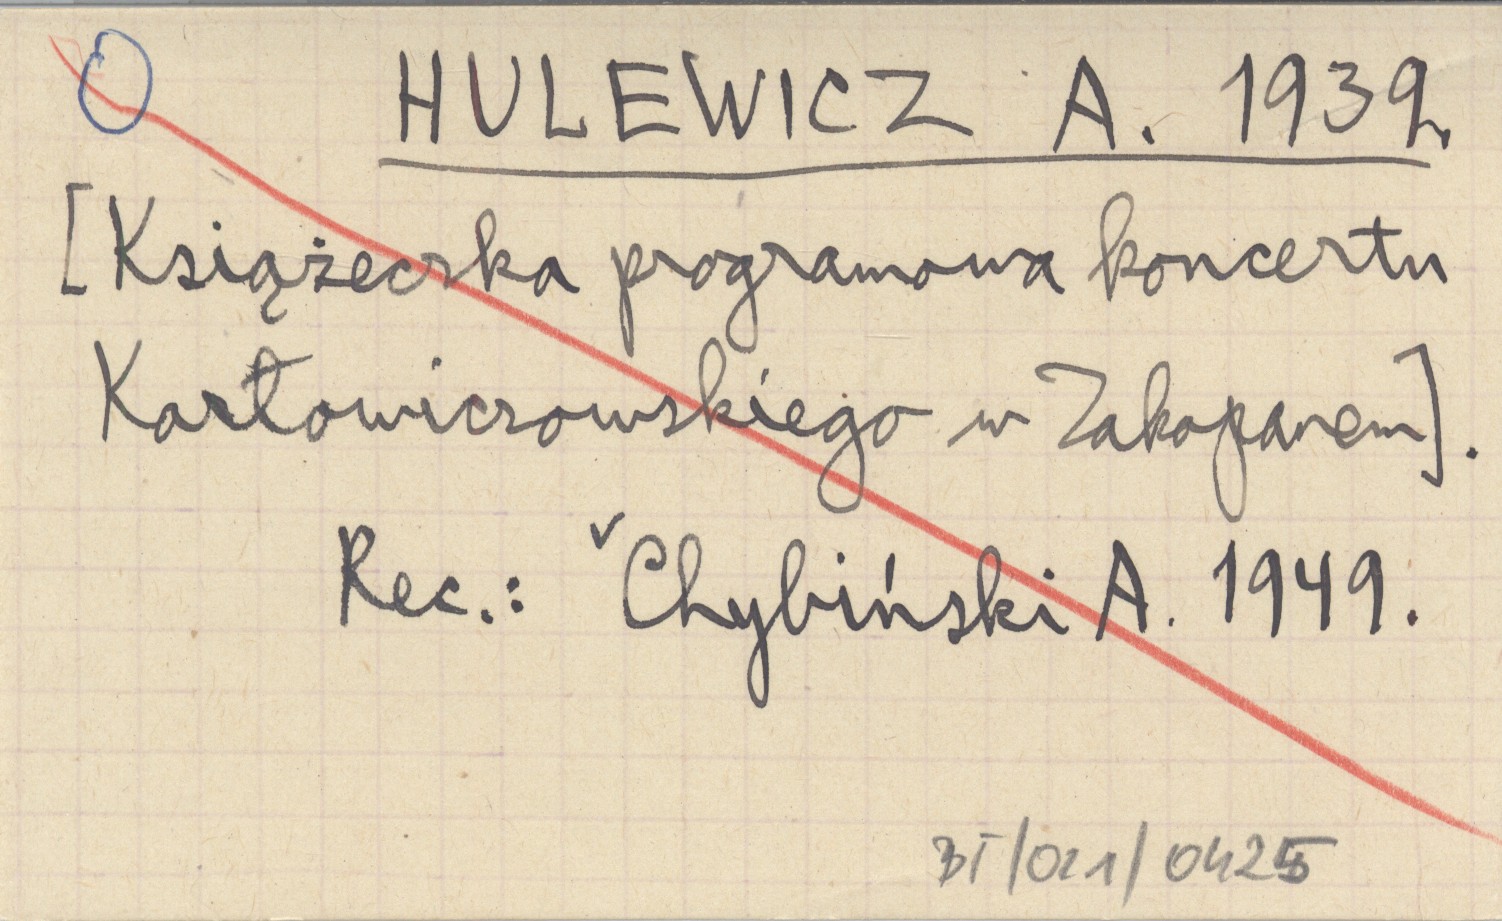 HULEWICZ A. 1939.
[Książeczka programowa koncertu
Karłowiczowskiego w Zakopanem].
Rec.: Chybiński A. 1949.